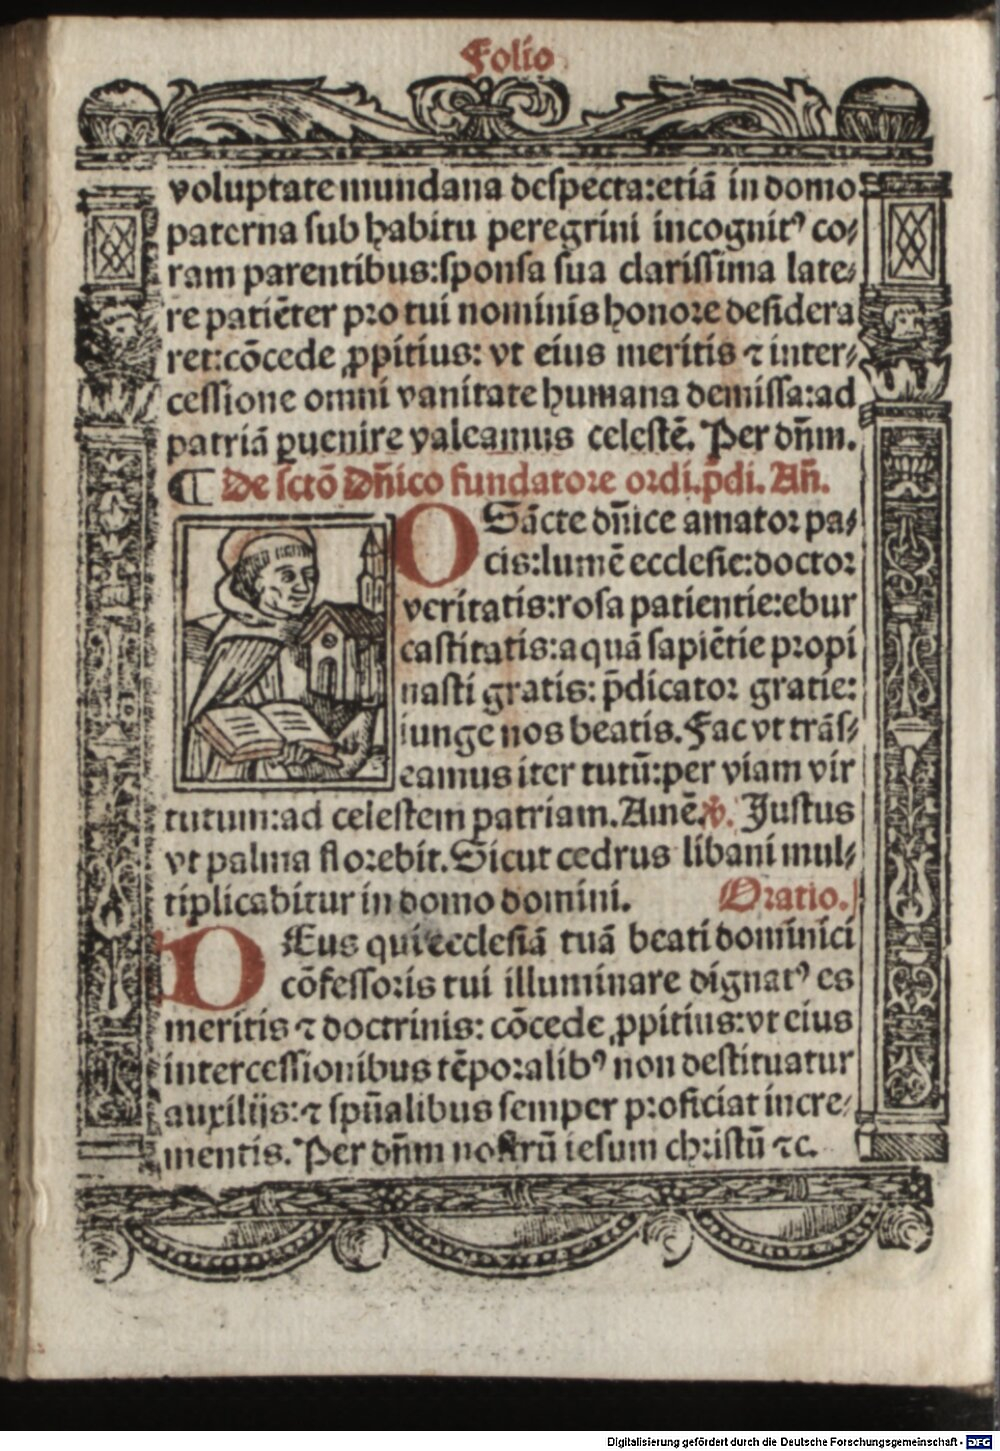 Folio
voluptate mundana despecta: etiā in domo
paterna sub habitu peregrini incognitꝰ co⸗
ram parentibus: sponsa sua clarissima late⸗
re patiēter pro tui nominis honore desidera
ret: cōcede ꝓpitius: vt eius meritis ⁊ inter⸗
cessione omni vanitate humana demissa: ad
patriā ꝑuenire valeamus celestē. Per dn̄m.
⸿ De sctō Dn̄ico fundatore ordi. p̄di. An̄.
O Sācte dn̄ice amator pa⸗
cis: lumē ecclesie: doctor
veritatis: rosa patientie: ebur
castitatis: aquā sapiētie propi
nasti gratis: p̄dicator gratie:
iunge nos beatis. Fac vt trās⸗
eamus iter tutū: per viam vir
tutum: ad celestem patriam. Amē. ℣. Justus
vt palma florebit. Sicut cedrus libani mul⸗
tiplicabitur in domo domini. Oratio.
DEus qui ecclesiā tuā beati dominici
cōfessoris tui illuminare dignatꝰ es
meritis ⁊ doctrinis: cōcede ꝓpitius: vt eius
intercessionibus tēporalibꝰ non destituatur
auxilijs: ⁊ spūalibus semper proficiat incre⸗
mentis. Per dn̄m nostrū iesum christū ⁊c.
Digitalisierung gefördert durch die Deutsche Forschungsgemeinschaft - DFG